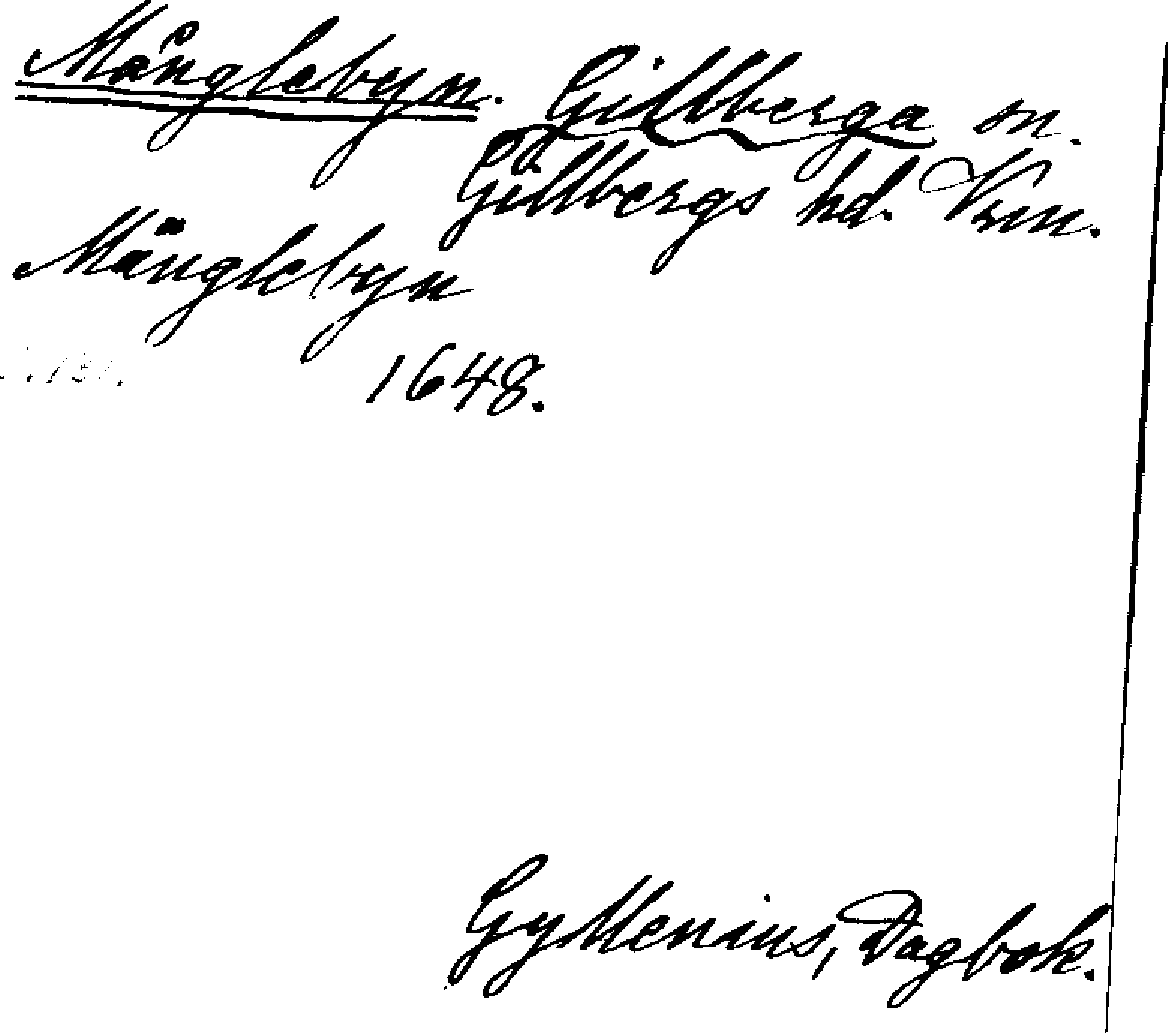 Månglebyn. Gillberga sn.
Gillbergs hd. Vrm.
Mänglebyn
1648.
Gyllenius, Dagbok.